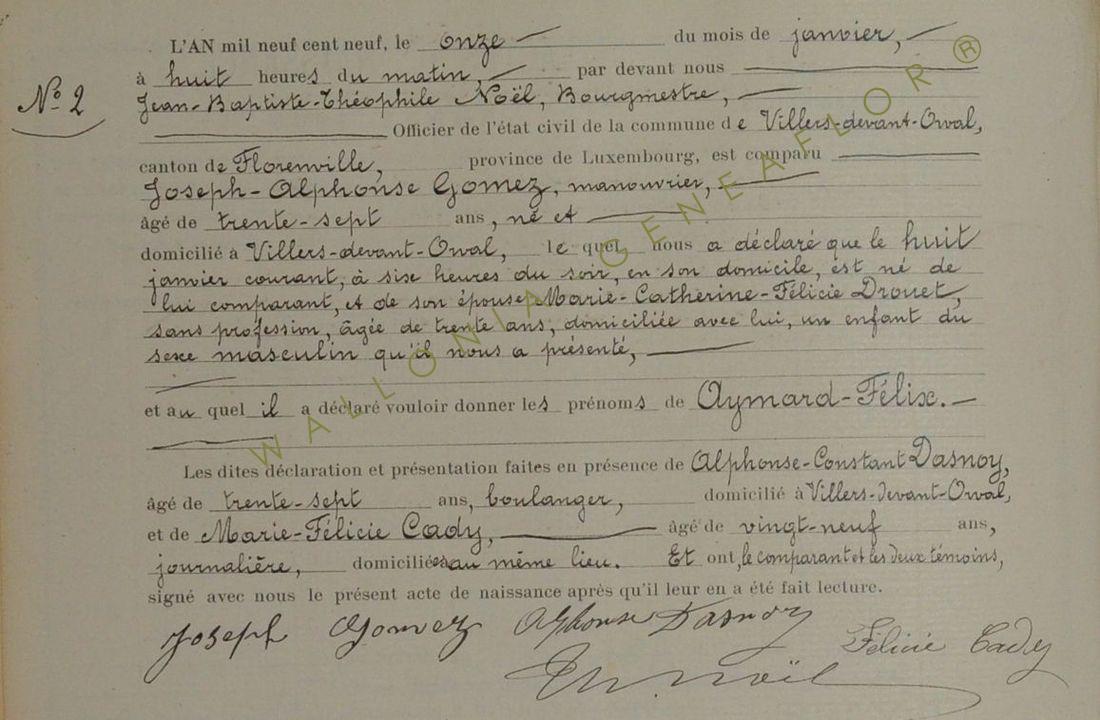 L'AN mil neuf cent neuf, le onze — du mois de janvier, —
à huit heures du matin, — par devant nous —
N° 2
Jean-Baptiste-Théophile Noël, Bourgmestre, —
— Officier de l'état civil de la commune de Villers-devant-Orval,
canton de Florenville, province de Luxembourg, est comparu —
Joseph-Alphonse Gomez, manouvrier, —
âgé de trente-sept ans, né et —
domicilié à Villers-devant-Orval, lequel nous a déclaré que le huit
janvier courant, à six heures du soir, en son domicile, est né de
lui comparant, et de son épouse Marie-Catherine-Félicie Drouet,
sans profession, âgée de trente ans, domiciliée avec lui, un enfant du
sexe masculin qu'il nous a présenté, —
et au quel il a déclaré vouloir donner les prénoms de Aymard-Félix. —
Les dites déclaration et présentation faites en présence de Alphonse-Constant Dasnoy,
âgé de trente-sept ans, boulanger, domicilié à Villers-devant-Orval,
et de Marie-Félicie Cady, — âgé de vingt-neuf ans,
journalière, domiciliés au même lieu. Et ont, le comparant et les deux témoins,
signé avec nous le présent acte de naissance après qu'il leur en a été fait lecture.
Joseph Gomez Alphonse Dasnoy Félicie Cady
Th. Noël
WALLONIA GENEAFLOR ®